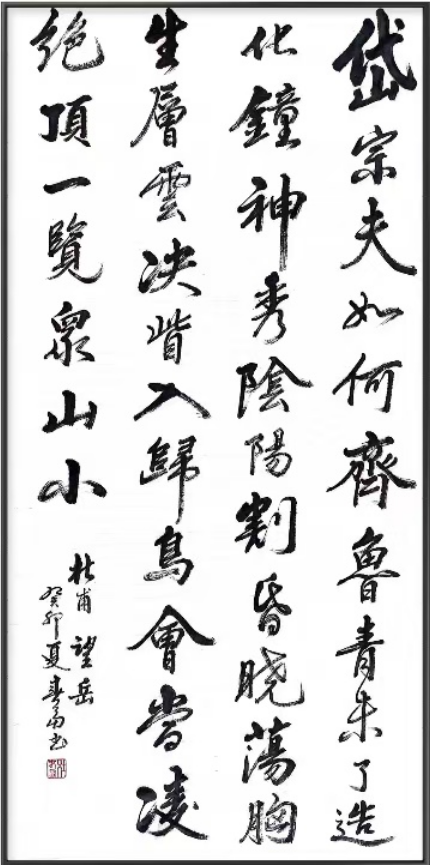 岱宗夫如何齊魯青未了造
化鐘神秀陰陽割昏晓蕩胸
生層雲决眥入歸鳥會當凌
絶頂一覽衆山小
杜甫望岳
癸卯夏春书